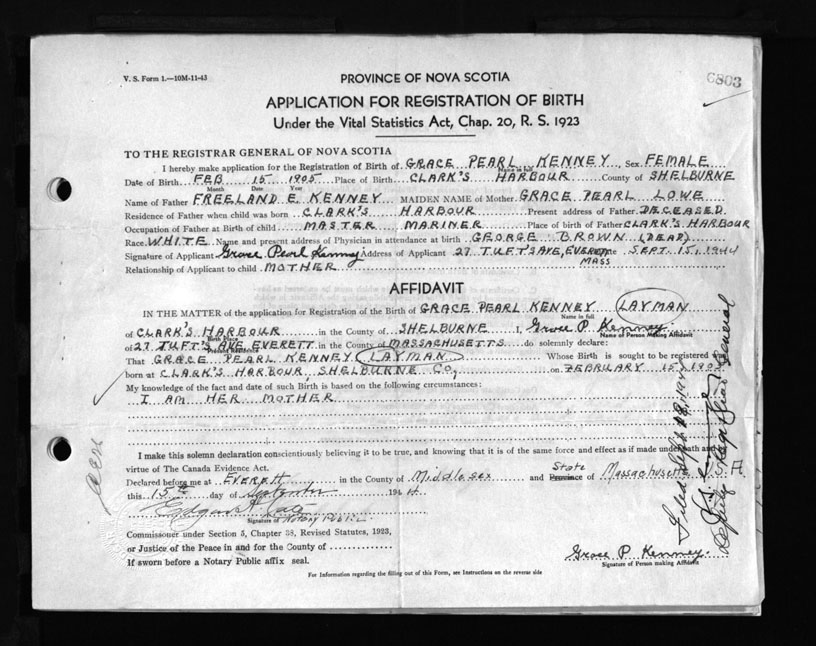 V. S. Form 1.—10M-11-43
6803
PROVINCE OF NOVA SCOTIA
APPLICATION FOR REGISTRATION OF BIRTH
Under the Vital Statistics Act, Chap. 20, R. S. 1923
TO THE REGISTRAR GENERAL OF NOVA SCOTIA
I hereby make application for the Registration of Birth of GRACE PEARL KENNEY, Sex FEMALE
Name in full
Date of Birth FEB 15 1905 Place of Birth CLARK'S HARBOUR County of SHELBURNE
Month Date Year
Name of Father FREELAND E KENNEY MAIDEN NAME of Mother GRACE PEARL LOWE
Residence of Father when child was born CLARK'S HARBOUR Present address of Father DECEASED
Occupation of Father at Birth of child MASTER MARINER Place of birth of Father CLARK'S HARBOUR
Race WHITE Name and present address of Physician in attendance at birth GEORGE BROWN (DEAD)
Signature of Applicant Grace Pearl Kenney Address of Applicant 27 TUFTS AVE, EVERETT SEPT. 15, 1944
MASS
Relationship of Applicant to child MOTHER
AFFIDAVIT
IN THE MATTER of the application for Registration of the Birth of GRACE PEARL KENNEY LAYMAN
Name in full
of CLARK'S HARBOUR in the County of SHELBURNE I, Grace P. Kenney
Birth Place
Name of Person Making Affidavit
of 27 TUFT'S AVE EVERETT in the County of MASSACHUSETTS do solemnly declare:
Present Residence
That GRACE PEARL KENNEY (LAYMAN) Whose Birth is sought to be registered
born at CLARK'S HARBOUR, SHELBURNE CO, on FEBRUARY 15 1905
My knowledge of the fact and date of such Birth is based on the following circumstances:
I AM HER MOTHER
I make this solemn declaration conscientiously believing it to be true, and knowing that it is of the same force and effect as if made under oath and
virtue of The Canada Evidence Act.
Declared before me at Everett in the County of Middlesex and Province of Massachusetts
State
this 15th day of September 1944
Signature of Notary Public
Commissioner under Section 5, Chapter 38, Revised Statutes, 1923,
or Justice of the Peace in and for the County of
If sworn before a Notary Public affix seal.
Grace P. Kenney.
Signature of Person making Affidavit
For Information regarding the filling out of this Form, see Instructions on the reverse side
Deputy Registrar General